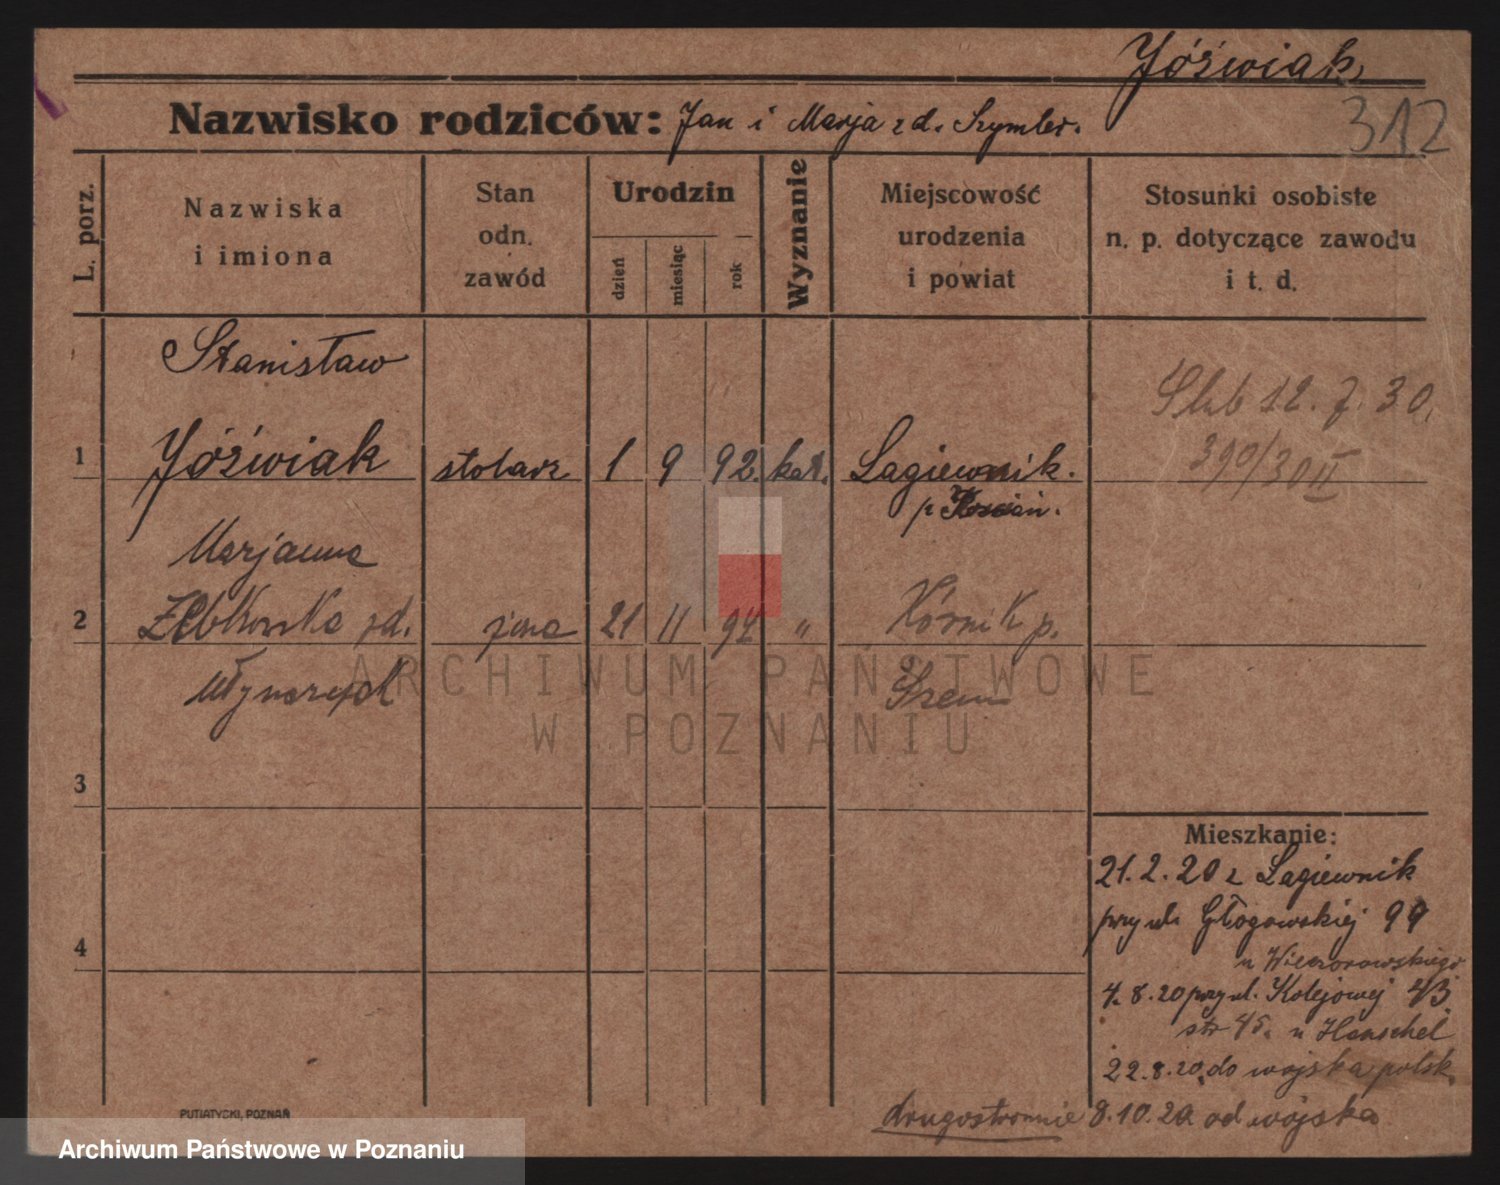 Jóźwiak
312
Nazwisko rodziców: Jan i Marja z d. Szymler.
L. porz.
Nazwiska
i imiona
Stan
odn.
zawód
Urodzin
dzień
miesiąc
rok
Wyznanie
Miejscowość
urodzenia
i powiat
Stosunki osobiste
n. p. dotyczące zawodu
i t. d.
Stanisław
1 Jóźwiak stolarz 1 9 92. kat. Lagiewnik.
p. Kościan.
Slub 12. 7. 30.
390/30 II
Marjanna
2 zd. żona 21 11 94 " Kórnik p.
Szrem
Młynarczyk
3
4
Mieszkanie:
21.2.20 z Lagiewnik
przy ul. Głogowskiej 99
u Wieczorowskiego
4.8.20 przy ul. Kolejowej 43
str 45. u Henschel
22.8.20. do wojska polsk.
drugostronnie 8.10.20 od wojska
PUTIATYCKI, POZNAŃ
ARCHIWUM PAŃSTWOWE
W POZNANIU
Archiwum Państwowe w Poznaniu